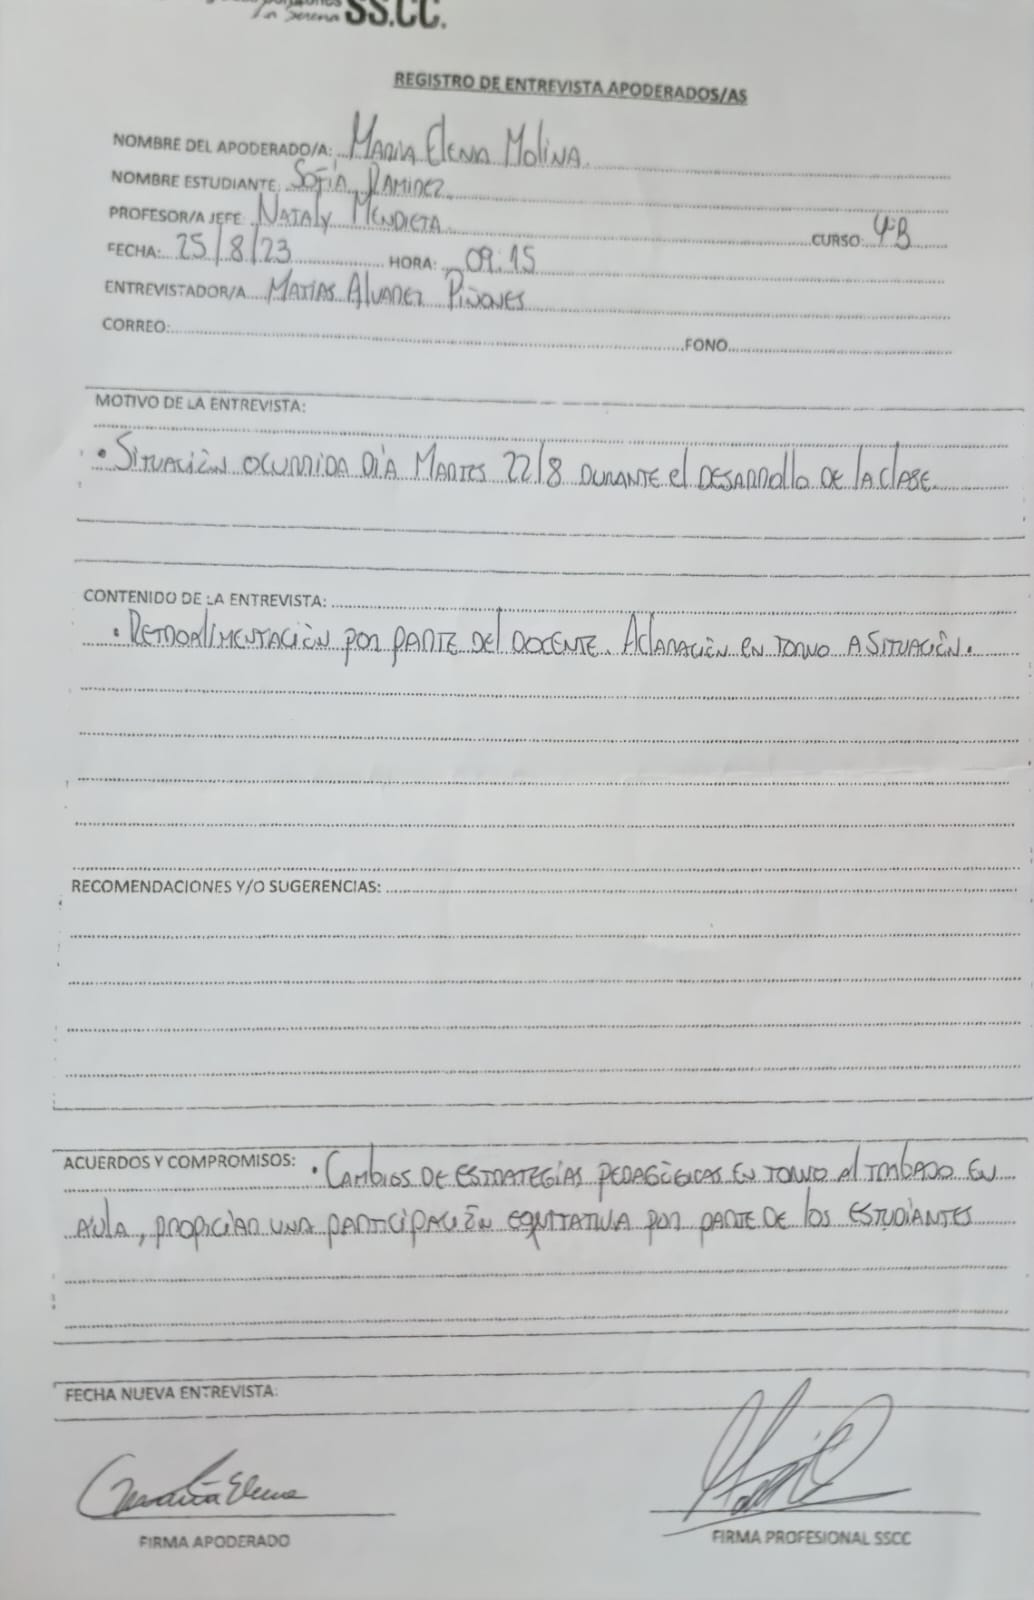 La Serena SS.CC.
REGISTRO DE ENTREVISTA APODERADOS/AS
NOMBRE DEL APODERADO/A: MARIA ElENA MOliNA.
NOMBRE ESTUDIANTE: SOFÍA RAMIREZ.
PROFESOR/A JEFE: NATALY MENDIETA. CURSO: 4°B
FECHA: 25/8/23 HORA: 09:15
ENTREVISTADOR/A MATÍAS AlVAREZ PIÑONES
CORREO: FONO
MOTIVO DE LA ENTREVISTA:
• SITUACIÓN OCURRIDA DÍA MARTES 22/8 DURANTE el DESARROllo DE lA ClASE.
CONTENIDO DE LA ENTREVISTA:
• RETROAlIMENTACIÓN POR PARTE DEl DOCENTE. AClARACIÓN EN TORNO A SITUACIÓN.
RECOMENDACIONES Y/O SUGERENCIAS:
ACUERDOS Y COMPROMISOS: • CAMBIOS DE ESTRATEGIAS PEDAGÓGICAS EN TORNO Al TRABAJO EN
AULA, PROPICIAR UNA PARTICIPACIÓN EQUITATIVA POR PARTE DE lOS ESTUDIANTES
FECHA NUEVA ENTREVISTA:
María Elena
FIRMA APODERADO FIRMA PROFESIONAL SSCC